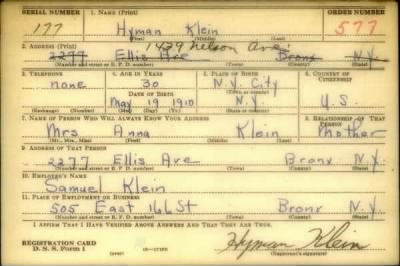 SERIAL NUMBER 1. NAME (Print) ORDER NUMBER
177 Hyman Klein 577
(First) (Middle) (Last)
2. ADDRESS (Print) 1439 Nelson Ave.
2277 Ellis Ave Bronx N.Y.
(Number and street or R. F. D. number) (Town) (County) (State)
3. TELEPHONE 4. AGE IN YEARS 5. PLACE OF BIRTH 6. COUNTRY OF CITIZENSHIP
none 30 N.Y. City
DATE OF BIRTH (Town or county)
May 19 1910 N.Y. U.S.
(Exchange) (Number) (Mo.) (Day) (Yr.) (State or country)
7. NAME OF PERSON WHO WILL ALWAYS KNOW YOUR ADDRESS 8. RELATIONSHIP OF THAT PERSON
Mrs Anna Klein Mother
(Mr., Mrs., Miss) (First) (Middle) (Last)
9. ADDRESS OF THAT PERSON
2277 Ellis Ave Bronx N.Y.
(Number and street or R. F. D. number) (Town) (County) (State)
10. EMPLOYER'S NAME
Samuel Klein
11. PLACE OF EMPLOYMENT OR BUSINESS
505 East 166 St Bronx N.Y.
(Number and street or R. F. D. number) (Town) (County) (State)
I AFFIRM THAT I HAVE VERIFIED ABOVE ANSWERS AND THAT THEY ARE TRUE.
REGISTRATION CARD
D. S. S. Form 1 Hyman Klein
(over) (Registrant's signature)